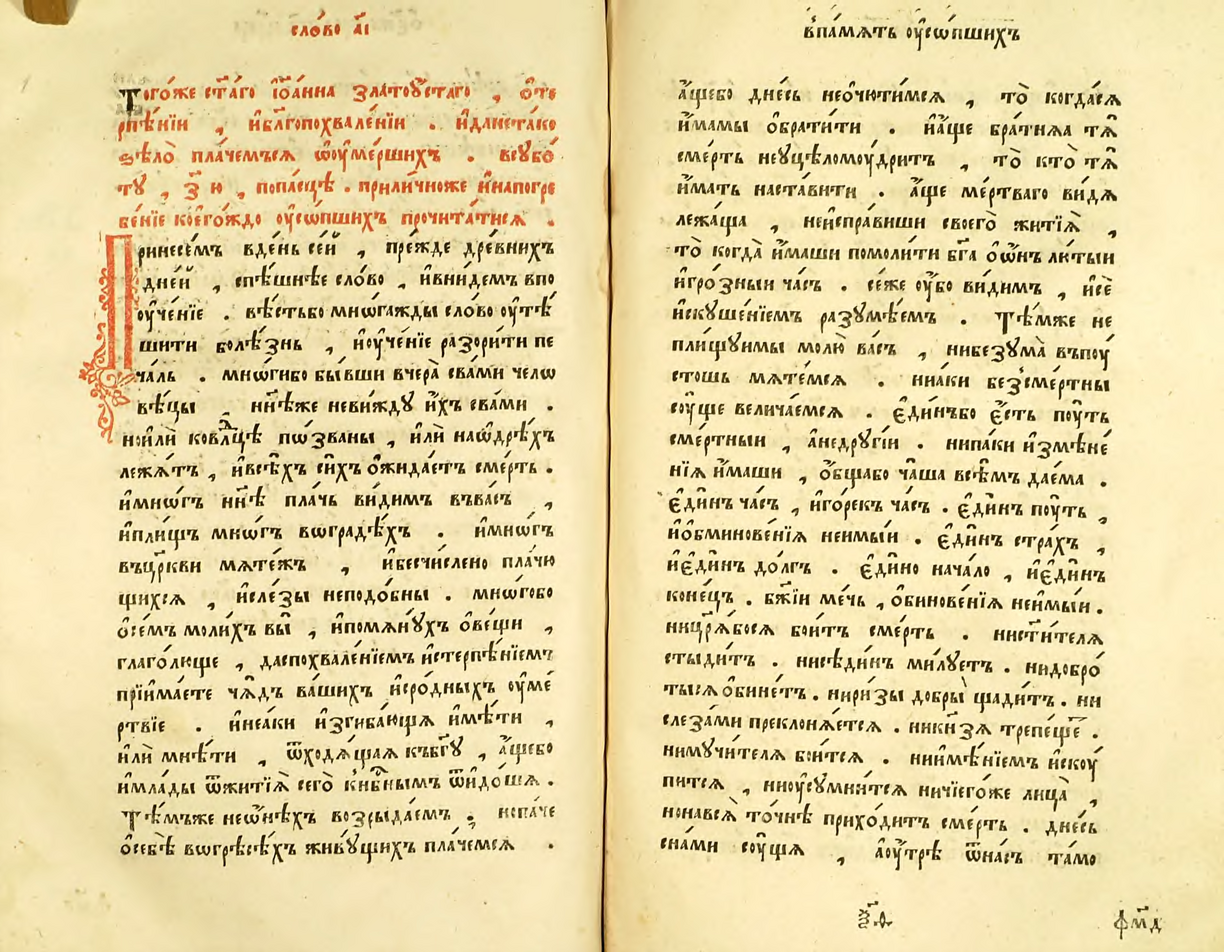 сло́во а҃і
Того́же ст҃а́го іѡ҆а́нна златоꙋ́стаго , ѡ҆те
рпѣ́нїи , и҆бл҃гопохвале́нїи . и҆да́нета́ко
ѕѣло̀ пла́чемъсѧ ѡ҆оу҆ме́ршихъ . всꙋбо́
тꙋ , з҃ ю , попа́сцѣ . прили́чноже и҆напогре
бе́нїе коего́ждо оу҆со́пшихъ прочита́тисѧ .
Принесе́мъ вде́нь се́й , пре́жде дре́внихъ
дне́й , спѣ́шнѣе сло́во , и҆вни́демъ впо
оу҆че́нїе . вѣ́стьбо мнѡ́гажды сло́во оу҆тѣ́
шити болѣ́знь , и҆оу҆че́нїе разори́ти пе
ча́ль . мнѡ́гибо бы́вши вчера̀ сва́ми челѡ
вѣ́цы , нн҃ѣже неви́ждꙋ и҆́хъ сва́ми .
но и҆лѝ ковл҃цѣ пѡ́званы , и҆́ли наѡ҆дрѣ́хъ
лежа́тъ , и҆всѣ́хъ си́хъ ѡ҆жида́етъ сме́рть .
и҆мнѡ́гъ нн҃ѣ пла́чь ви́димъ въва́съ ,
и҆пли́щъ мнѡ́гъ вѡгра́дѣхъ . и҆мнѡ́гъ
въцр҃кви мѧте́жъ , и҆бесчи́слено пла́чю
щихсѧ , и҆сле́зы неподо́бны . мнѡ́гобо
ѡ҆се́мъ моли́хъ вы̀ , и҆помѧнꙋ́хъ ѡ҆ве́щи ,
глаго́люще , даспохвале́нїемъ и҆стерпѣ́нїемъ
прїима́ете ча́дъ ва́шихъ и҆сро́дныхъ оу҆ме́
ртвїе . и҆ине́аки и҆згиба́ющѧ и҆мѣ́ти ,
и҆́ли мнѣ́ти , ѿходѧ́щаѧ къбг҃ꙋ , а҆́щебо
и҆мла́ды ѿжитїѧ̀ сего̀ ки҆́нымъ ѿидо́шѧ .
Тѣ́мъже неѡ҆нѣ́хъ возрыда́емъ , непа́че
ѡ҆себѣ̀ вѡгрѣсѣ́хъ живꙋ́щихъ пла́чемсѧ .
впа́мѧть оу҆со́пшихъ
а҆́щебо дне́сь неѡ҆чюти́мсѧ , то̀ когда́сѧ
и҆́мамы ѡ҆брати́ти . и҆а҆́ще бра́тнѧа тѧ̀
сме́рть неуцѣломоу́дритъ , то̀ кто̀ тѧ̀
и҆́мать наста́вити . а҆́ще ме́ртваго ви́дѧ
лежа́ща , неи҆спра́виши своего̀ житїѧ̀ ,
то̀ когда̀ и҆́маши помоли́ти бг҃а ѡ҆ѡ́нъ лю́тыи
и҆гро́зныи ча́съ . се́же оу҆́бо ви́димъ , и҆се̑
и҆скꙋше́нїемъ разꙋмѣ́емъ . Тѣ́мже не
плищꙋ́имы молю̀ ва́съ , нибезꙋма̀ въпоу́
стошь мѧте́мсѧ . ниа́ки безсме́ртны
соу́ще велича́емсѧ . є҆ди́нъбо є҆́сть поу́ть
сме́ртныи , а҆недрꙋ́гїи . нипа́ки и҆змѣне́
нїѧ и҆́маши , ѡ҆́бщабо ча́ша всѣ́мъ дае́ма .
є҆ди́нъ ча́съ , и҆го́рекъ ча́съ . є҆ди́нъ поу́ть ,
и҆ѡ҆бминове́нїѧ неимы́и . є҆ди́нъ стра́хъ ,
и҆є҆ди́нъ до́лгъ . є҆ди́но нача́ло , и҆є҆ди́нъ
коне́цъ . бж҃їи ме́чь , ѡ҆бинове́нїѧ неимы́и .
ницр҃ѧ́босѧ бои́тъ сме́рть . нист҃и́телѧ
стыди́тъ . нисѣди́нъ ми́лꙋетъ . нидобро́
ты сѧѡ҆бине́тъ . ниризы добры̀ щади́тъ . ни
слеза́ми преклонѧ́етсѧ . никн҃зѧ трепе́ще҃ .
нимꙋчи́телѧ бои́тсѧ . ниимѣ́нїемъ и҆скоу́
питсѧ , ниоу҆сꙋмни́тсѧ ничїего́же лица̀ ,
нонавсѧ̀ то́чнѣ прихо́дитъ сме́рть . дне́сь
сна́ми соу́щѧ , а҆оу́трѣ ѿна́съ та́мо
фм҃д